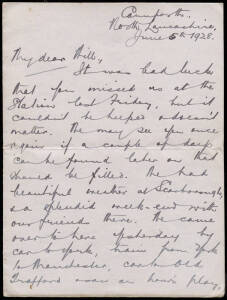 Carnforth.
North Lancashire,
June 5th 1928.
My dear Will,
It was bad luck
that you missed us at the
last Friday, but it
couldn't be helped & doesn't
matter. We may see you once
again if a couple of days
can be found later on that
should be filled. We had
beautiful weather at Scarborough,
& a splendid week-end with
our friends there. We came
over to here yesterday by
car to York, train from York
to Manchester, car to Old
Trafford hour's play,